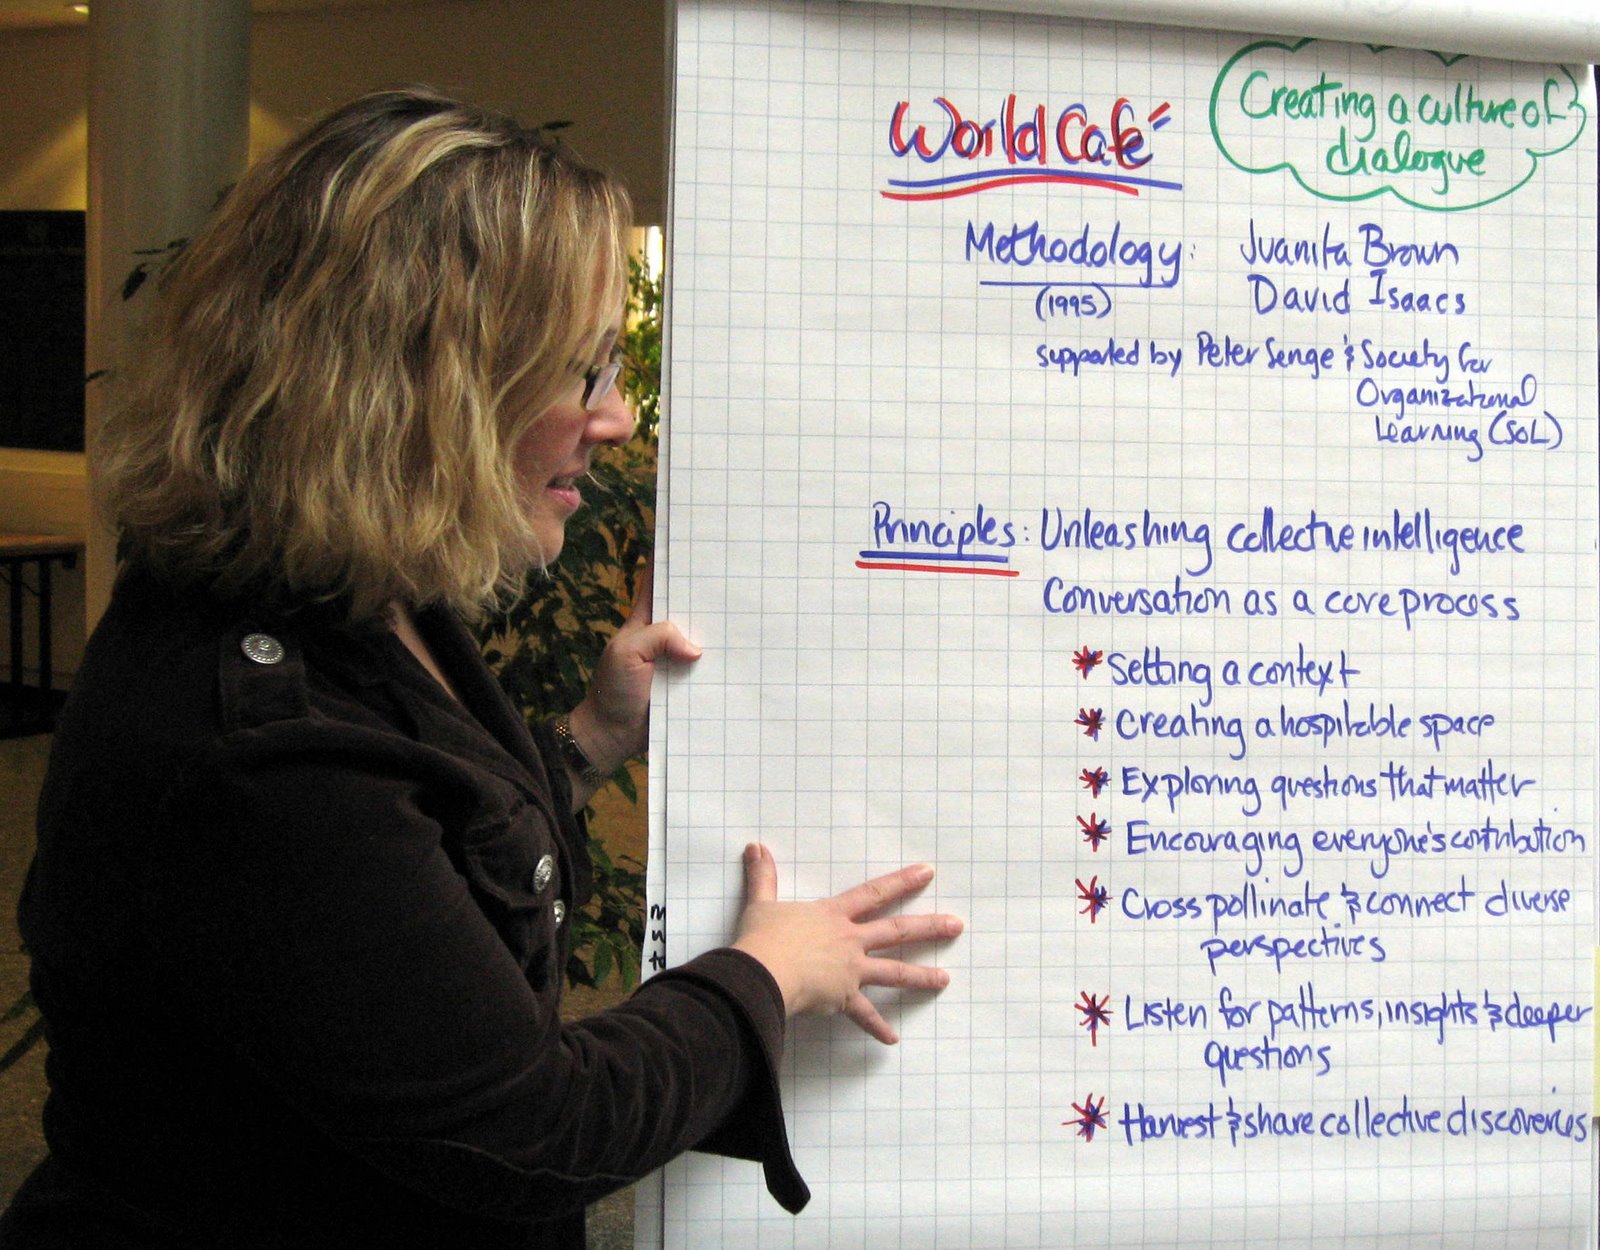 World Cafe
Creating a culture of
dialogue
Methodology: Juanita Brown
(1995) David Isaacs
supported by Peter Senge & Society for
Organizational
Learning (SoL)
Principles: Unleashing collective intelligence
Conversation as a core process
* Setting a context
* Creating a hospitable space
* Exploring questions that matter
* Encouraging everyone's contribution
* Cross pollinate & connect diverse
perspectives
* Listen for patterns, insights & deeper
questions
* Harvest & share collective discoveries